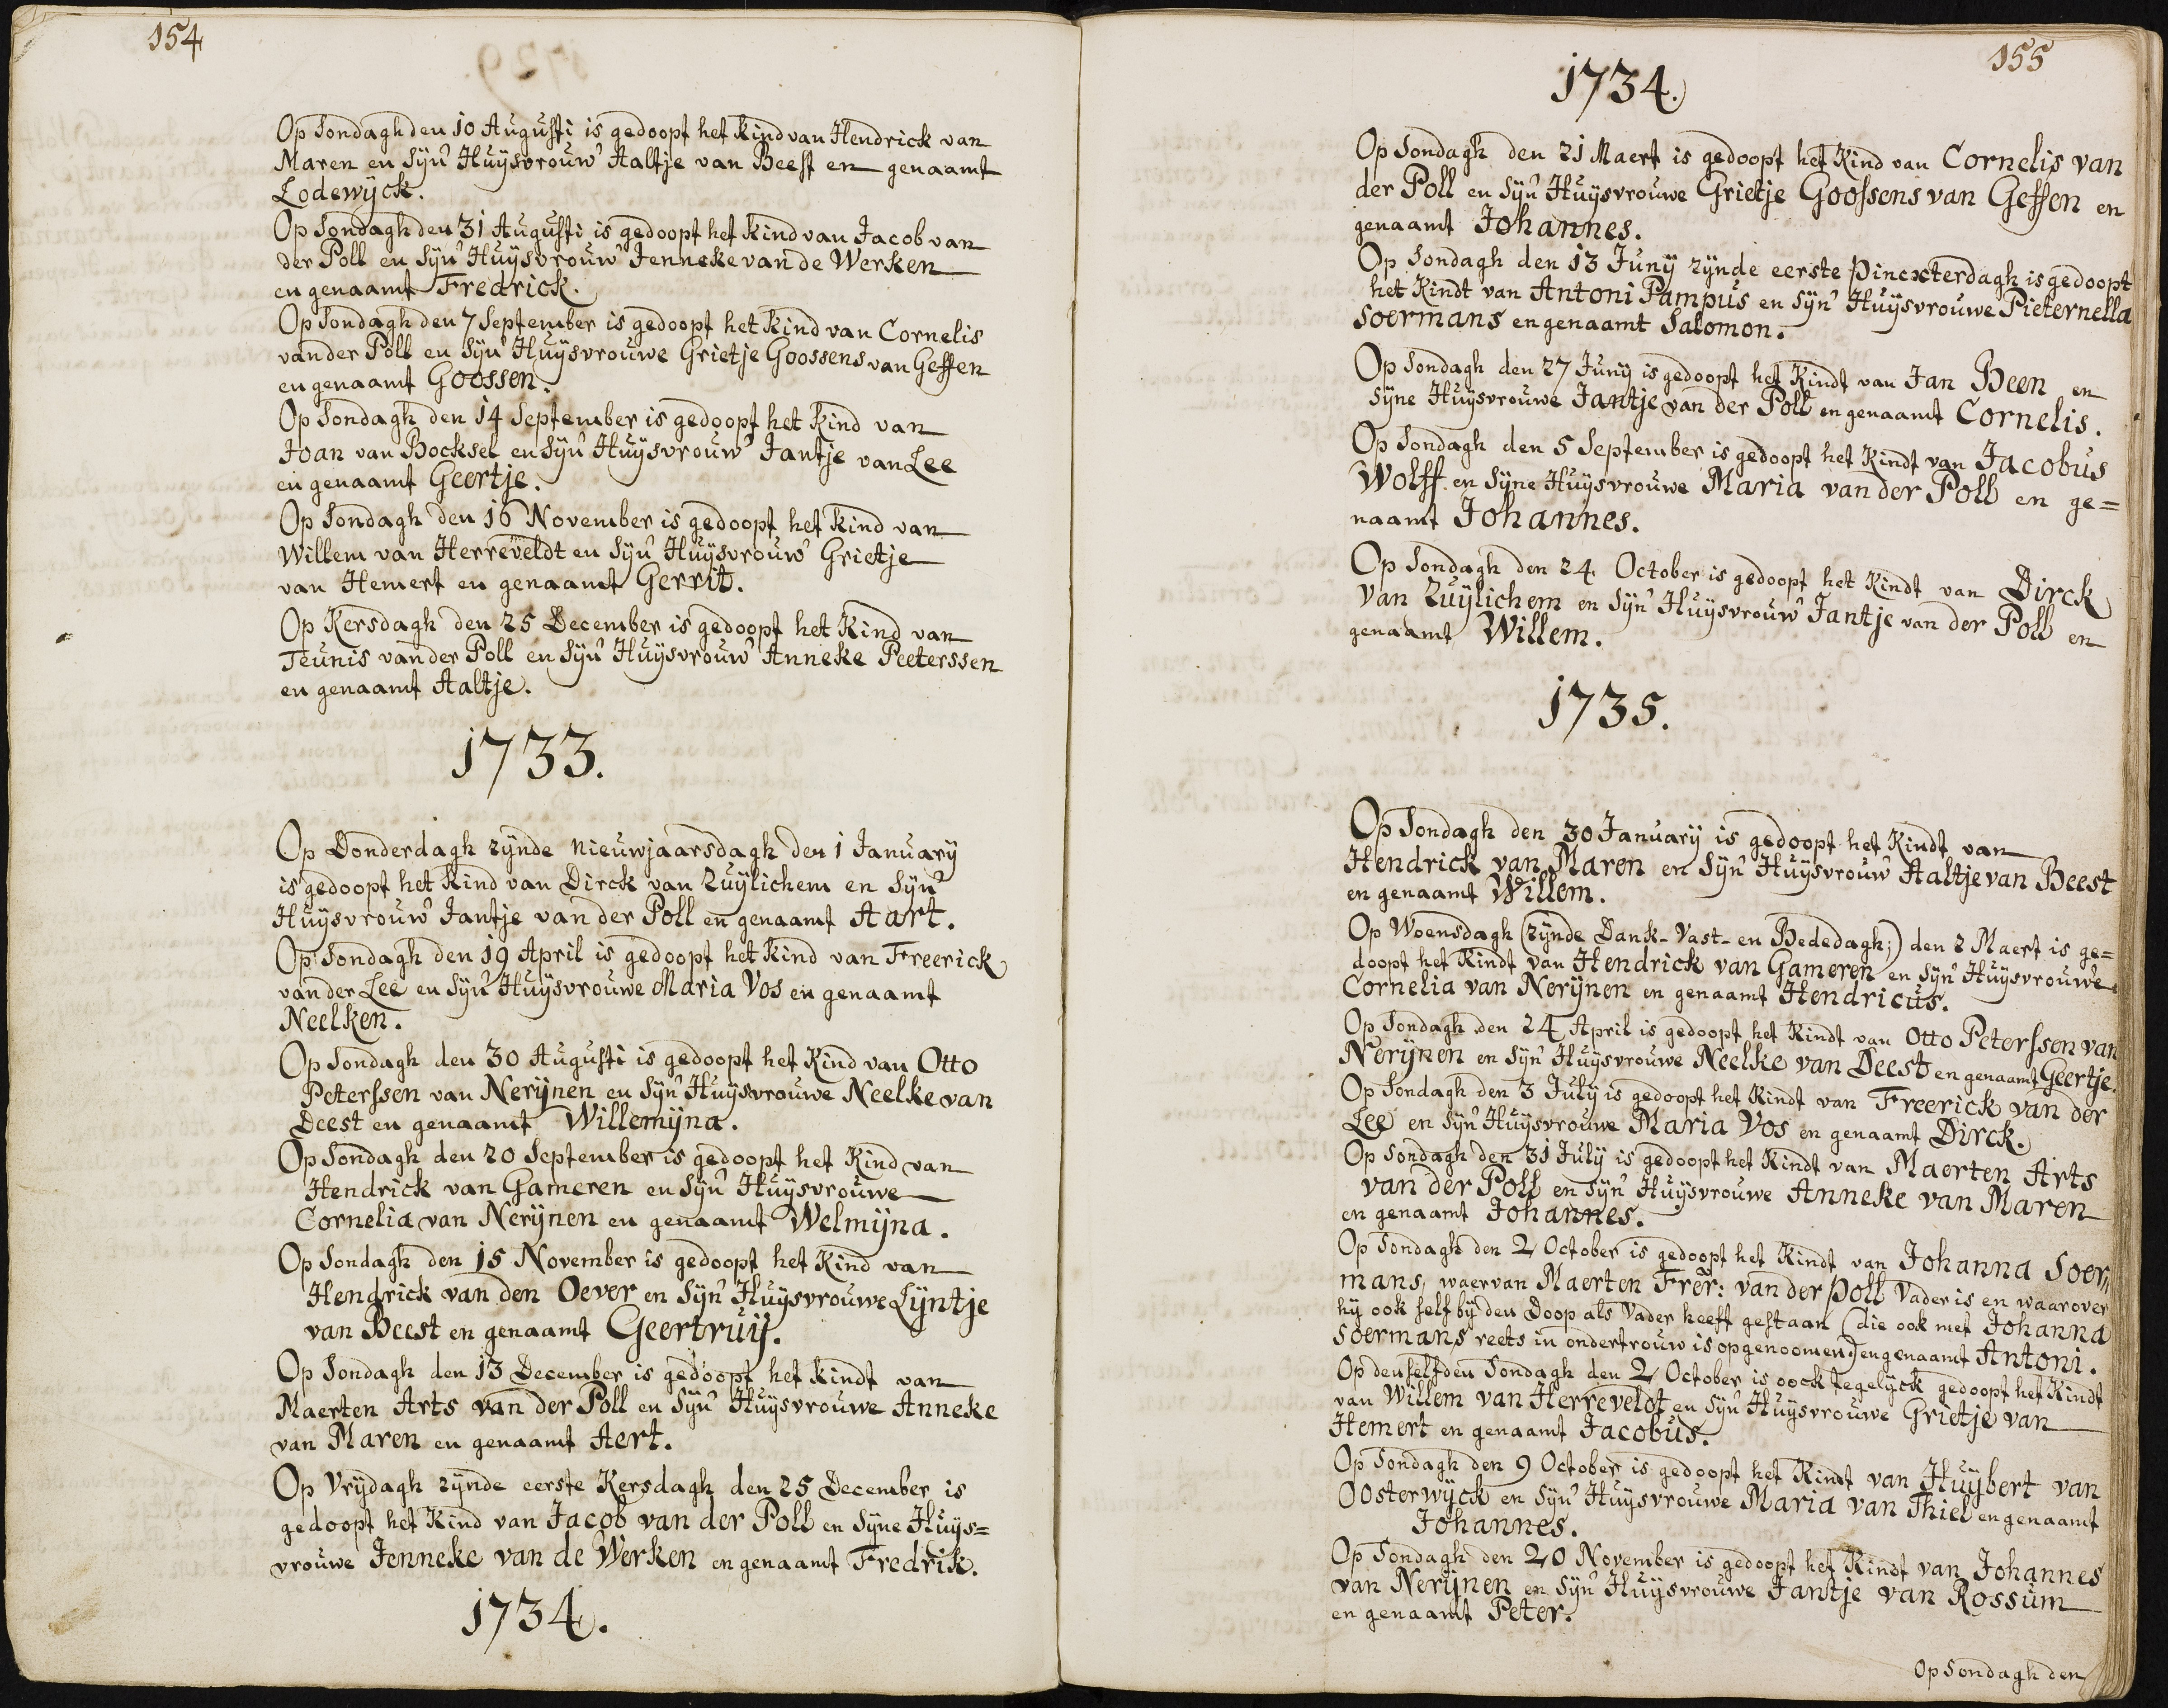 154
Op Sondagh den 10 Augusti is gedoopt het kind van Hendrick van
Maren en Syn Huysvrouw Aaltje van Beest en genaamt
Lodewyck.
Op Sondagh den 31 Augusti is gedoopt het kind van Jacob van
der Poll en Syn Huysvrouw Jenneke van de Werken
en genaamt Fredrick.
Op Sondagh den 7 September is gedoopt het kind van Cornelis
van der Poll en Syn Huysvrouwe Grietje Goossens van Geffen
en genaamt Goossen.
Op Sondagh den 14 September is gedoopt het kind van
Joan van Bocksel en Syn Huysvrouw Jantje van Lee
en genaamt Geertje.
Op Sondagh den 16 November is gedoopt het kind van
Willem van Herreveldt en Syn Huysvrouw Grietje
van Hemert en genaamt Gerrit.
Op Kersdagh den 25 December is gedoopt het Kind van
Teunis van der Poll en Syn Huysvrouw Anneke Peeterssen
en genaamt Aaltje.
1733.
Op Donderdagh zynde nieuwjaarsdagh den 1 January
is gedoopt het Kind van Dirck van Zuylichem en Syn
Huysvrouw Jantje van der Poll en genaamt Aart.
Op Sondagh den 19 April is gedoopt het Kind van Freerick
van der Lee en Syn Huysvrouwe Maria Vos en genaamt
Neelken.
Op Sondagh den 30 Augusti is gedoopt het Kind van Otto
Peterssen van Nerynen en Syn Huysvrouwe Neelke van
Deest en genaamt Willemyna.
Op Sondagh den 20 September is gedoopt het Kind van
Hendrick van Gameren en Syn Huysvrouwe
Cornelia van Nerynen en genaamt Welmyna.
Op Sondagh den 15 November is gedoopt het Kind van
Hendrick van den Oever en Syn Huysvrouwe Lyntje
van Beest en genaamt Geertruy.
Op Sondagh den 13 December is gedoopt het Kindt van
Maerten Arts van der Poll en Syn Huysvrouwe Anneke
van Maren en genaamt Aert.
Op Vrydagh zynde eerste Kersdagh den 25 December is
gedoopt het Kind van Jacob van der Poll en Syne Huys=
vrouwe Jenneke van de Werken en genaamt Fredrik.
1734.
155
1734.
Op Sondagh den 21 Maert is gedoopt het Kind van Cornelis van
der Poll en Syn Huysvrouwe Grietje Goossens van Geffen en
genaamt Johannes.
Op Sondagh den 13 Juny zynde eerste Pincxterdagh is gedoopt
het Kindt van Antoni Pampus en Syn Huysvrouwe Pieternella
Soermans en genaamt Salomon.
Op Sondagh den 27 Juny is gedoopt het Kindt van Jan Been en
Syne Huysvrouwe Jantje van der Poll en genaamt Cornelis.
Op Sondagh den 5 September is gedoopt het Kindt van Jacobus
Wolff en Syne Huysvrouwe Maria van der Poll en ge=
naamt Johannes.
Op Sondagh den 24 October is gedoopt het Kindt van Dirck
van Zuylichem en Syn Huysvrouw Jantje van der Poll en
genaamt Willem.
1735.
Op Sondagh den 30 January is gedoopt het Kindt van
Hendrick van Maren en Syn Huysvrouw Aaltje van Beest
en genaamt Willem.
Op Woensdagh (zynde Dank-Vast-en Bededagh;) den 2 Maert is ge=
doopt het Kindt van Hendrick van Gameren en Syn Huysvrouwe
Cornelia van Nerynen en genaamt Hendricus.
Op Sondagh den 24 April is gedoopt het Kindt van Otto Peterssen van
Nerynen en Syn Huysvrouwe Neelke van Deest en genaamt Geertje.
Op Sondagh den 3 July is gedoopt het Kindt van Freerick van der
Lee en Syn Huysvrouwe Maria Vos en genaamt Dirck.
Op Sondagh den 31 July is gedoopt het Kindt van Maerten Arts
van der Poll en Syn Huysvrouwe Anneke van Maren
en genaamt Johannes.
Op Sondagh den 2 October is gedoopt het Kindt van Johanna Soer„
mans, waervan Maerten Frer: van der Poll Vader is en waarover
hy ook self by den Doop als Vader heeft gestaan (die ook met Johanna
Soermans reets in ondertrouw is opgenoomen.) en genaamt Antoni.
Op denselfden Sondagh den 2 October is oock tegelyck gedoopt het Kindt
van Willem van Herreveldt en Syn Huysvrouwe Grietje van
Hemert en genaamt Jacobus.
Op Sondagh den 9 October is gedoopt het Kindt van Huybert van
Oosterwyck en Syn Huysvrouwe Maria van Thiel en genaamt
Johannes.
Op Sondagh den 20 November is gedoopt het Kindt van Johannes
van Nerynen en Syn Huysvrouwe Jantje van Rossum
en genaamt Peter.
Op Sondagh den